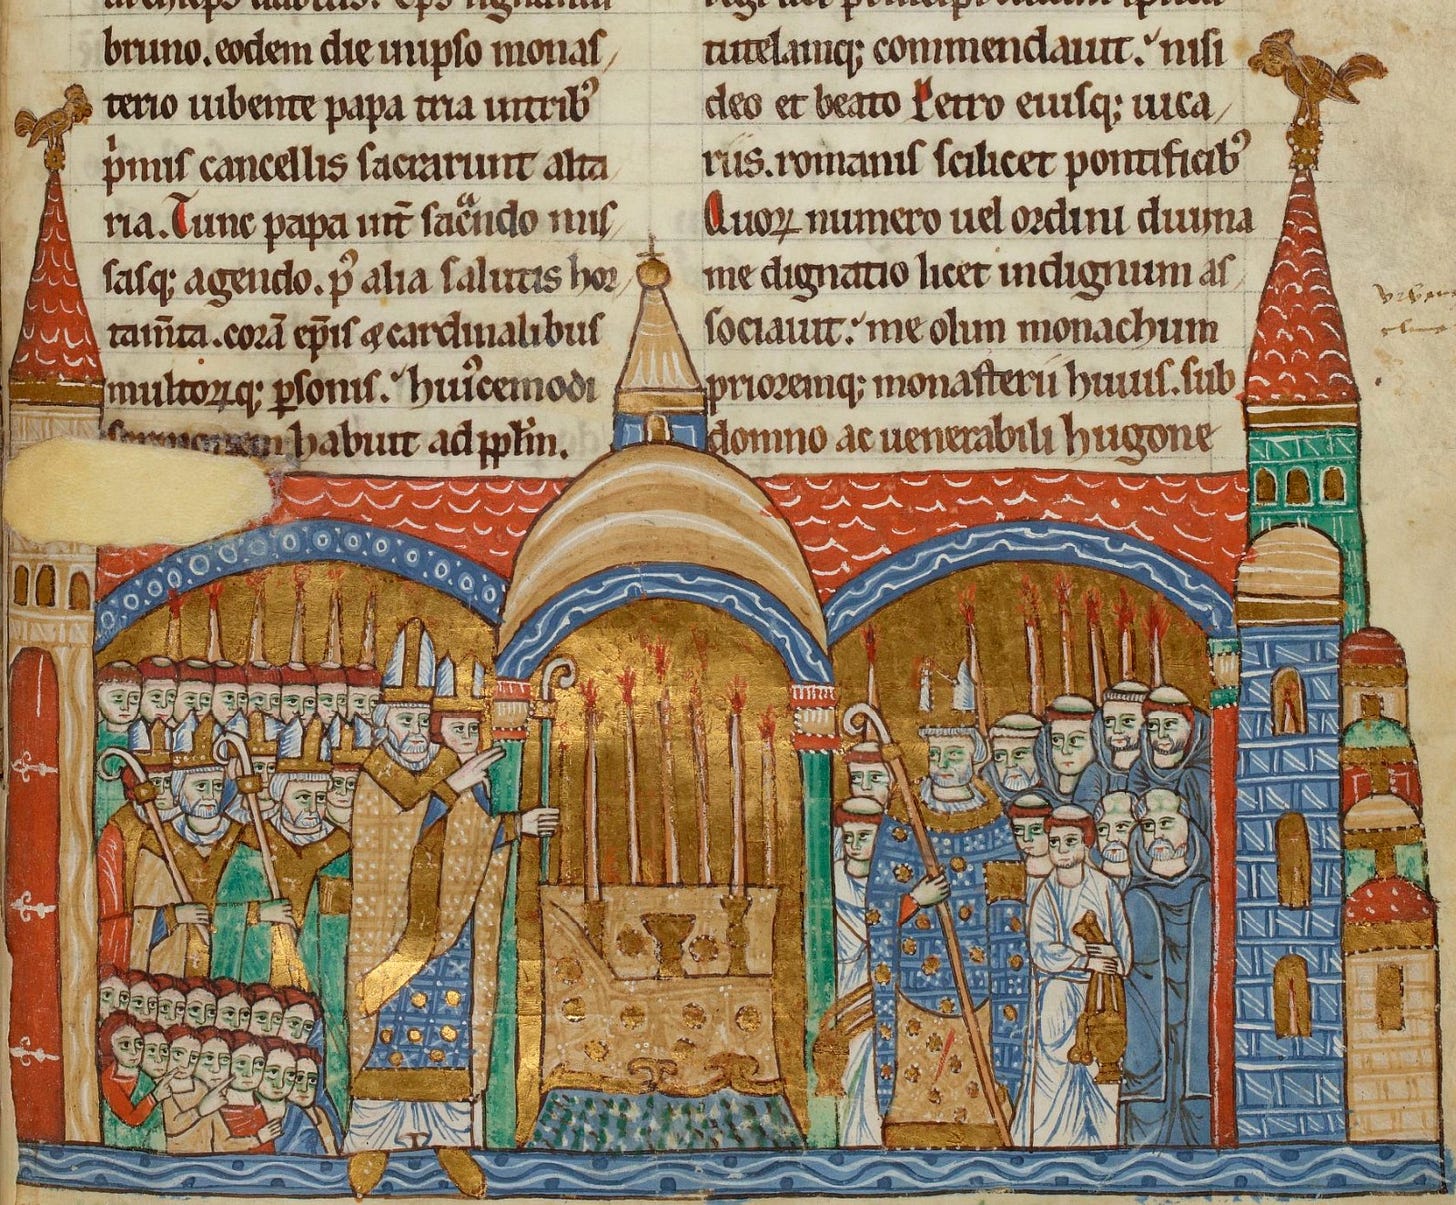 bruno. eodem die in ipso monas
terio iubente papa tria in tribꝰ
pͥmis cancellis sacrarunt alta
ria. Tunc papa int̃ sac̃ndo mis
sasq; agendo. p̃ alia salutis hor
tam̃ta. corã ep̃is ⁊ cardinalibus
multorꝝq; ꝑsonis. huiꝰcemodi
habuit ad pp̃lm.
tutelamq; commendauit. nisi
deo et beato Petro eiusq; uica
riis. romanis scilicet pontificibꝰ
Quoꝝ numero uel ordini diuina
me dignatio licet indignum as
sociauit. me olim monachum
prioremq; monasterii huius. sub
domno ac uenerabili hugone